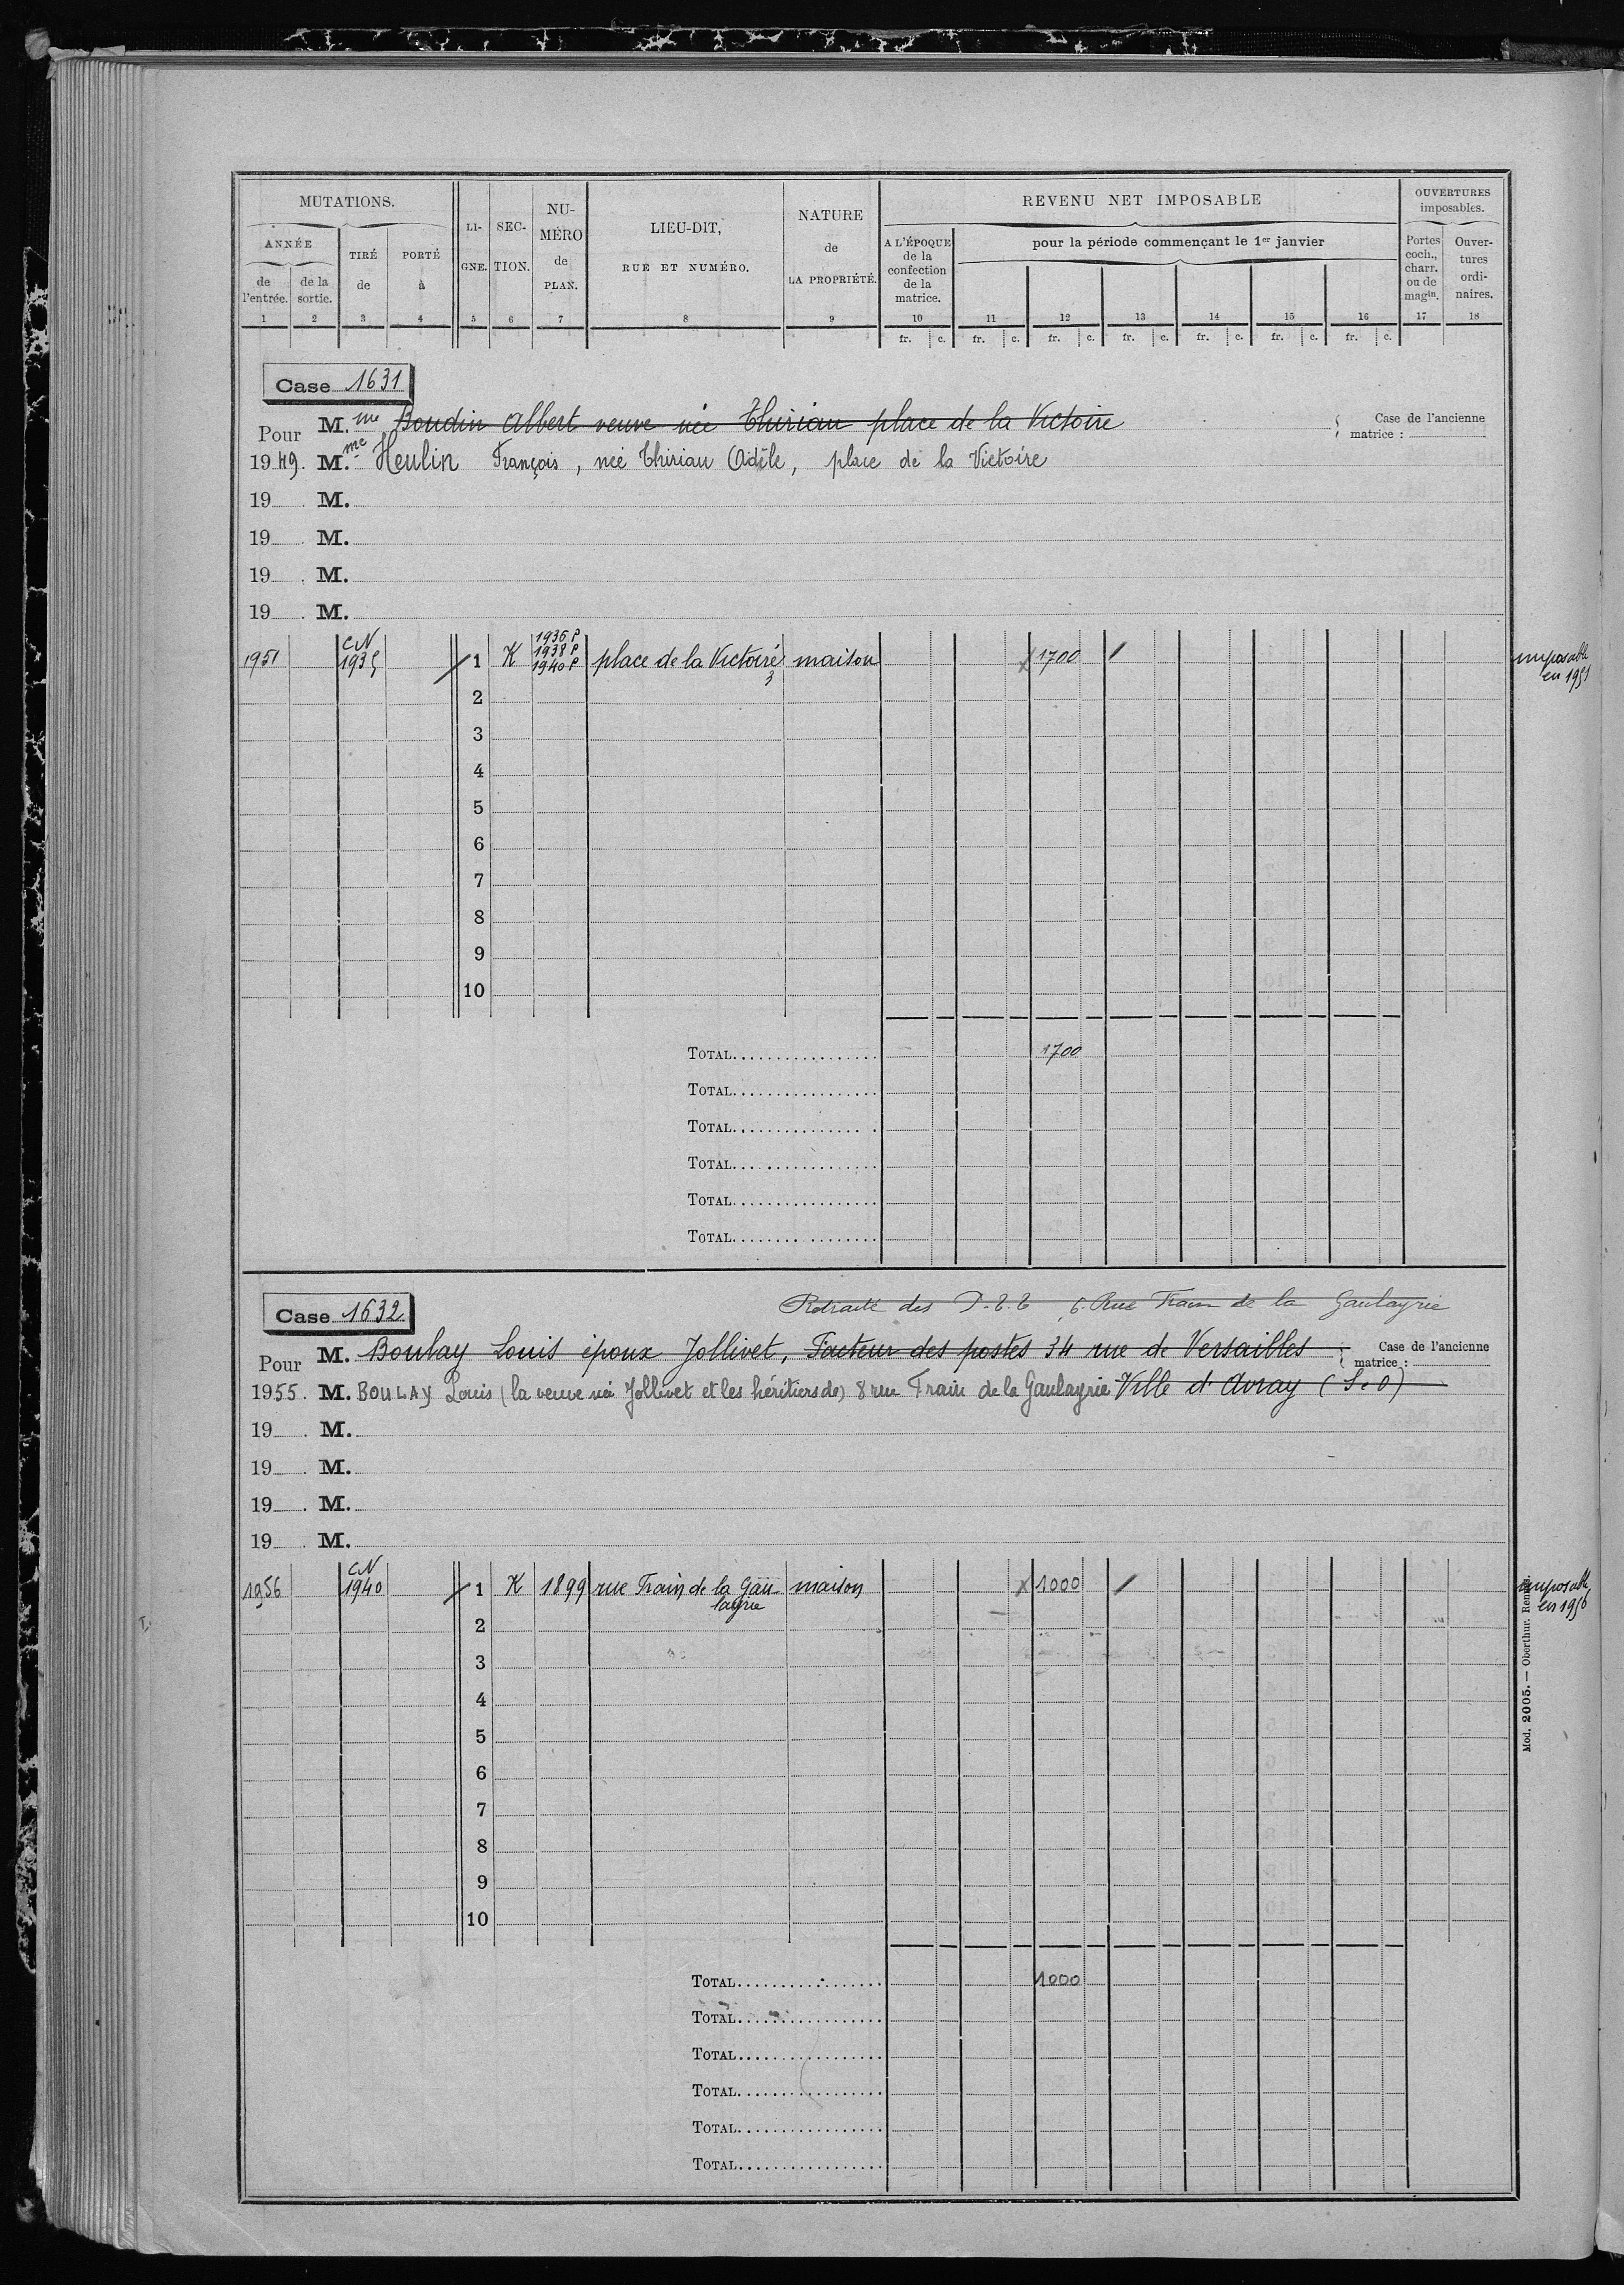 MUTATIONS.
ANNÉE
de l'entrée.
de la sortie.
TIRÉ de
PORTÉ à
LI-GNE.
SEC-TION.
NU-MÉRO de PLAN.
LIEU-DIT,
RUE ET NUMÉRO.
NATURE
de
LA PROPRIÉTÉ.
REVENU NET IMPOSABLE
A L'ÉPOQUE de la confection de la matrice.
pour la période commençant le 1er janvier
OUVERTURES imposables.
Portes coch., charr. ou de magin.
Ouver-tures ordi-naires.
1 2 3 4 5 6 7 8 9 10 11 12 13 14 15 16 17 18
fr. c. fr. c. fr. c. fr. c. fr. c. fr. c. fr. c.
Case 1631
Pour M.me Boudin Albert veuve née Thiriau place de la Victoire
Case de l'ancienne matrice :
1949. M.me Heulin François, née Thiriau Adèle, place de la Victoire
19 . M.
19 . M.
19 . M.
19 . M.
1951 CN 1935 1 K 1936 P 1938 P 1940 P place de la Victoire 3 maison 1700 imposable en 1951
2
3
4
5
6
7
8
9
10
TOTAL 1700
TOTAL
TOTAL
TOTAL
TOTAL
TOTAL
Case 1632
Retraité des P.T.T, 6. Rue Train de la Gaulayrie
Pour M. Boulay Louis époux Jollivet, Facteur des postes 34 rue de Versailles
Case de l'ancienne matrice :
1955. M. BOULAY Louis (la veuve née Jollivet et les héritiers de) 8 rue Train de la Gaulayrie Ville d'Avray (S.O)
19 . M.
19 . M.
19 . M.
19 . M.
1956 CN 1940 1 K 1899 rue Train de la Gaulayrie maison 1000 imposable en 1956
2
3
4
5
6
7
8
9
10
TOTAL 1000
TOTAL
TOTAL
TOTAL
TOTAL
TOTAL
Mod. 2005. — Oberthur. Rennes.